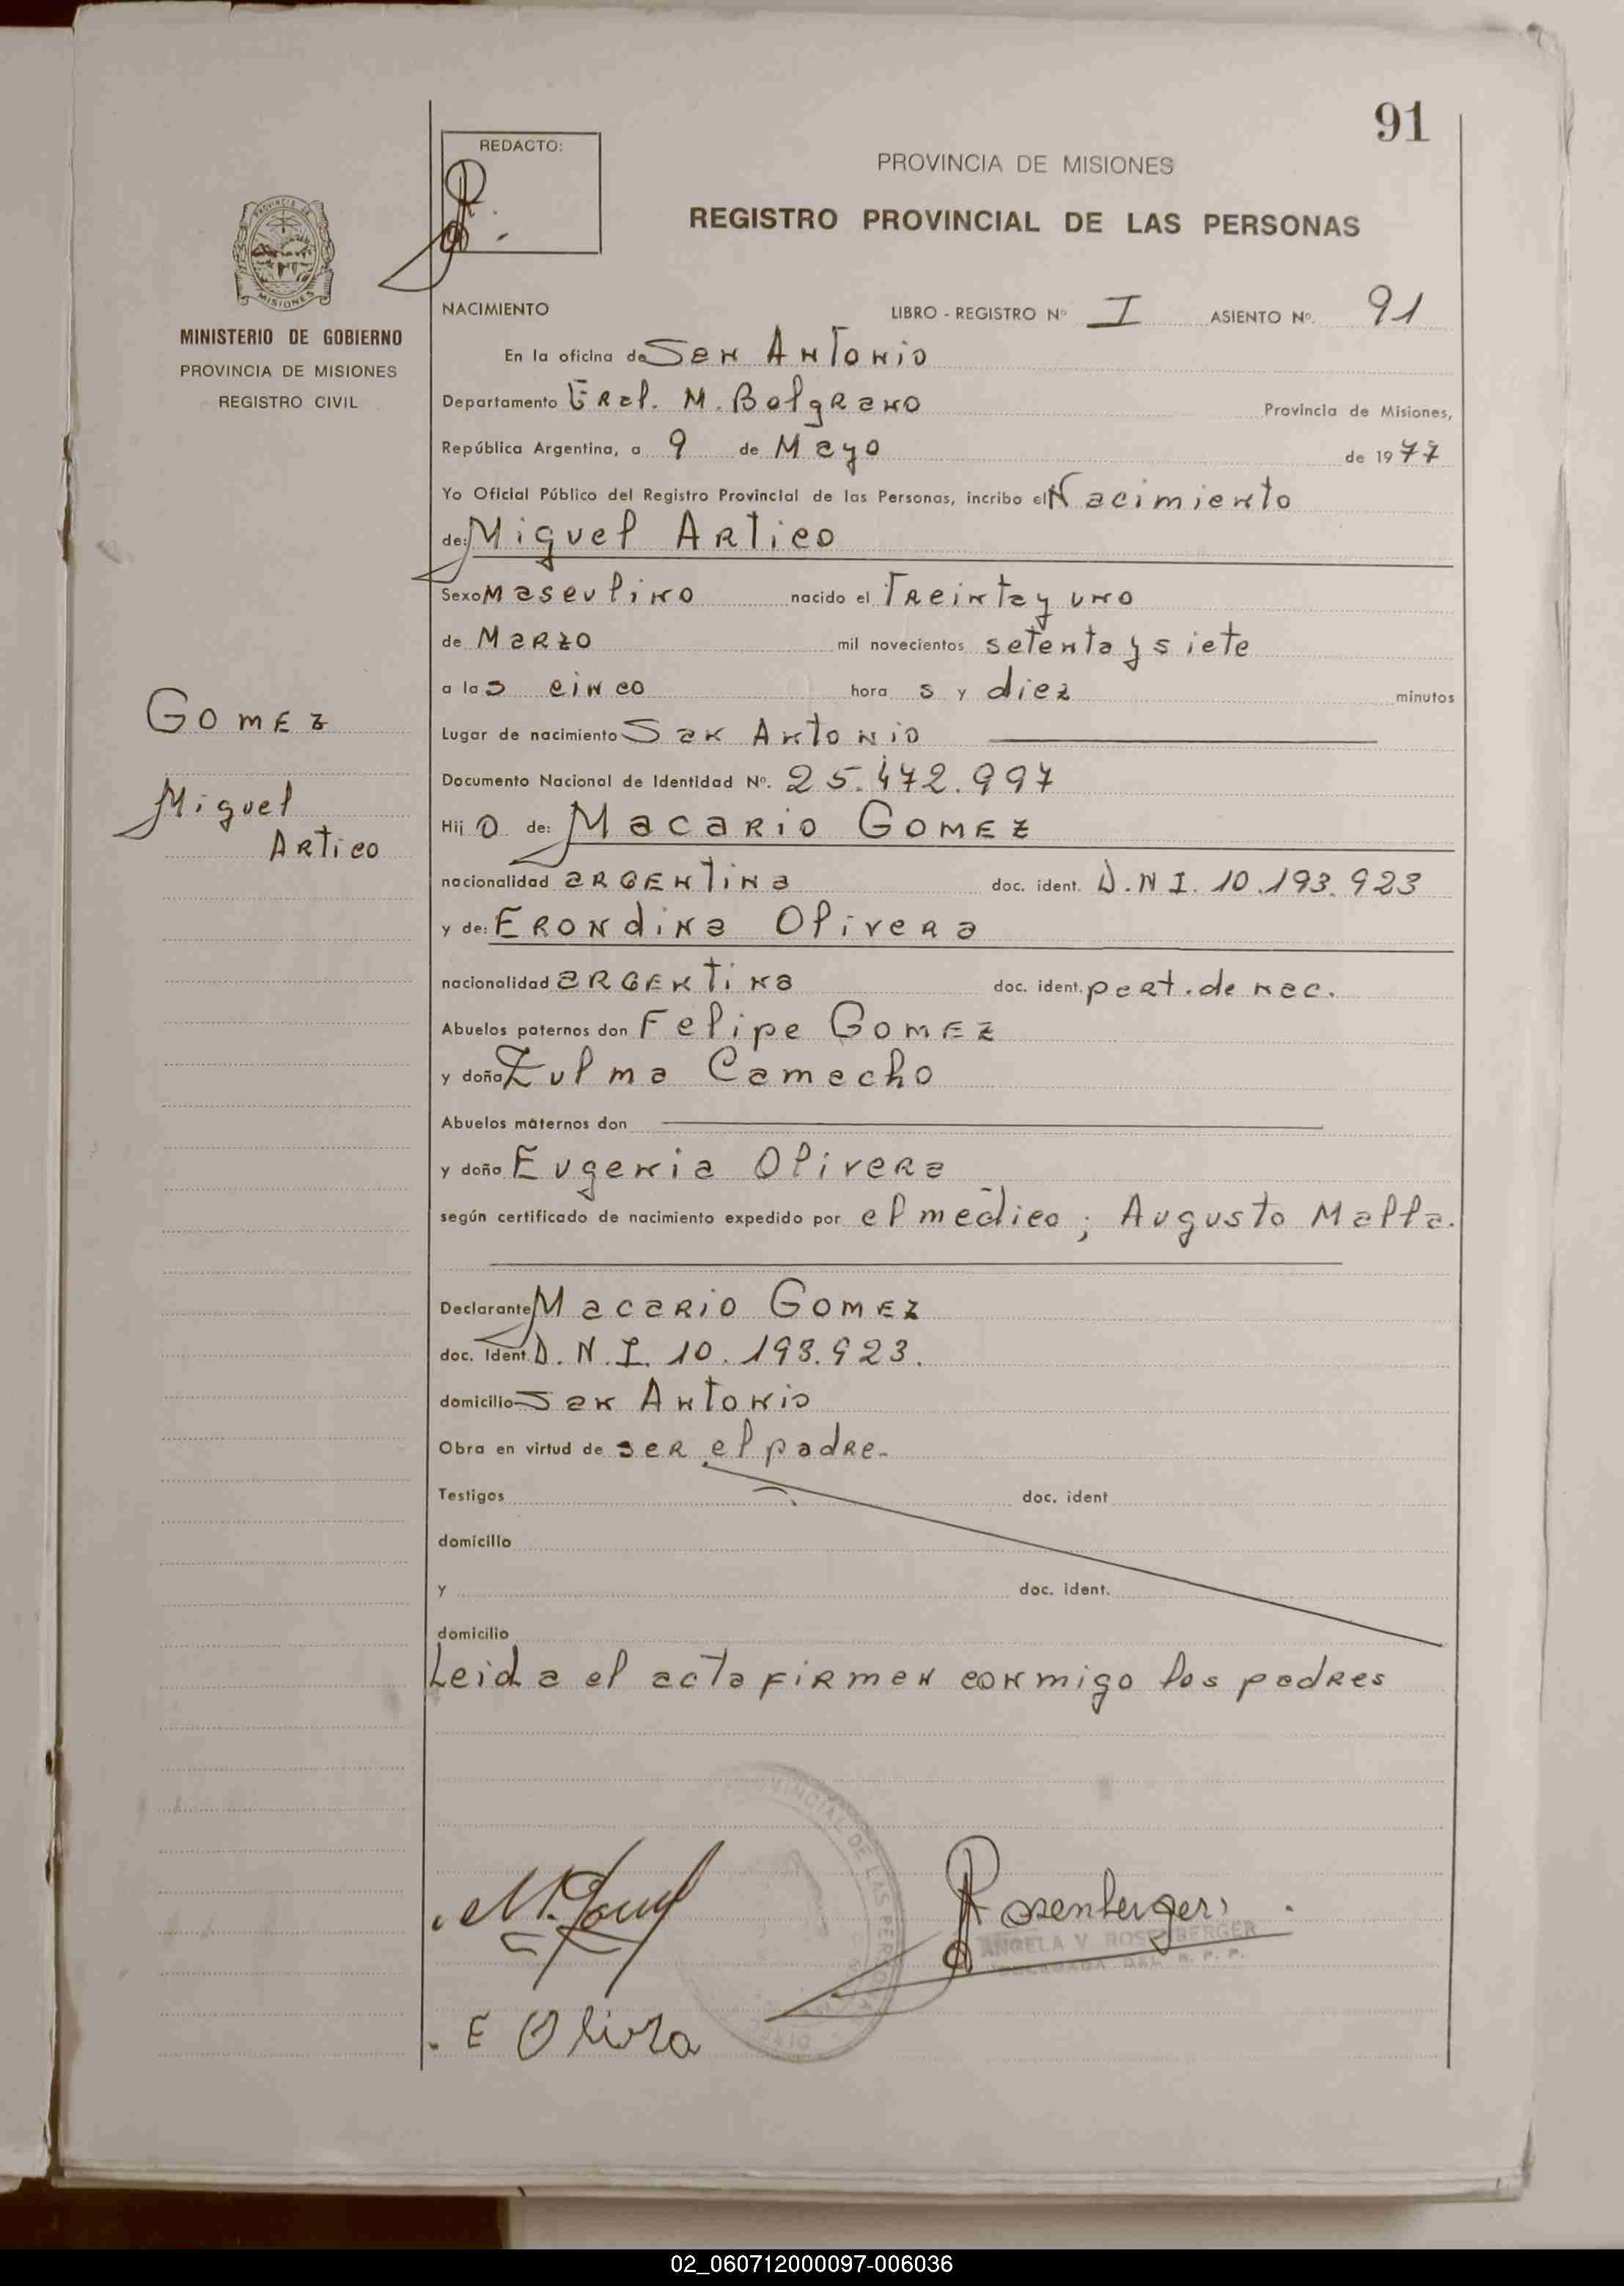 91
REDACTO:
PROVINCIA DE MISIONES
REGISTRO PROVINCIAL DE LAS PERSONAS
MINISTERIO DE GOBIERNO
PROVINCIA DE MISIONES
REGISTRO CIVIL
NACIMIENTO LIBRO - REGISTRO Nº I ASIENTO Nº. 91
En la oficina de San Antonio
Departamento Gral. M. Belgrano Provincia de Misiones,
República Argentina, a 9 de Mayo de 1977
Yo Oficial Público del Registro Provincial de las Personas, incribo el Nacimiento
de: Miguel Artico
Sexo Masculino nacido el Treinta y uno
de Marzo mil novecientos setenta y siete
a las cinco horas y diez minutos
Gomez
Lugar de nacimiento San Antonio
Documento Nacional de Identidad Nº. 25.472.997
Miguel
Artico
Hijo de: Macario Gomez
nacionalidad argentina doc. ident. D.N.I. 10.193.923
y de: Erondina Olivera
nacionalidad argentina doc. ident. part. de nac.
Abuelos paternos don Felipe Gomez
y doña Zulma Camacho
Abuelos maternos don
y doña Eugenia Olivera
según certificado de nacimiento expedido por el médico; Augusto Malla.
Declarante Macario Gomez
doc. Ident. D.N.I. 10.193.923.
domicilio San Antonio
Obra en virtud de ser el padre.
Testigos doc. ident
domicilio
y doc. ident.
domicilio
Leida el acta firman conmigo los padres
PROVINCIAL DE LAS PERSONAS
Rosenberger
ANGELA V. ROSENBERGER
DELEGADA DEL R. P. P.
E Olivra
02_060712000097-006036